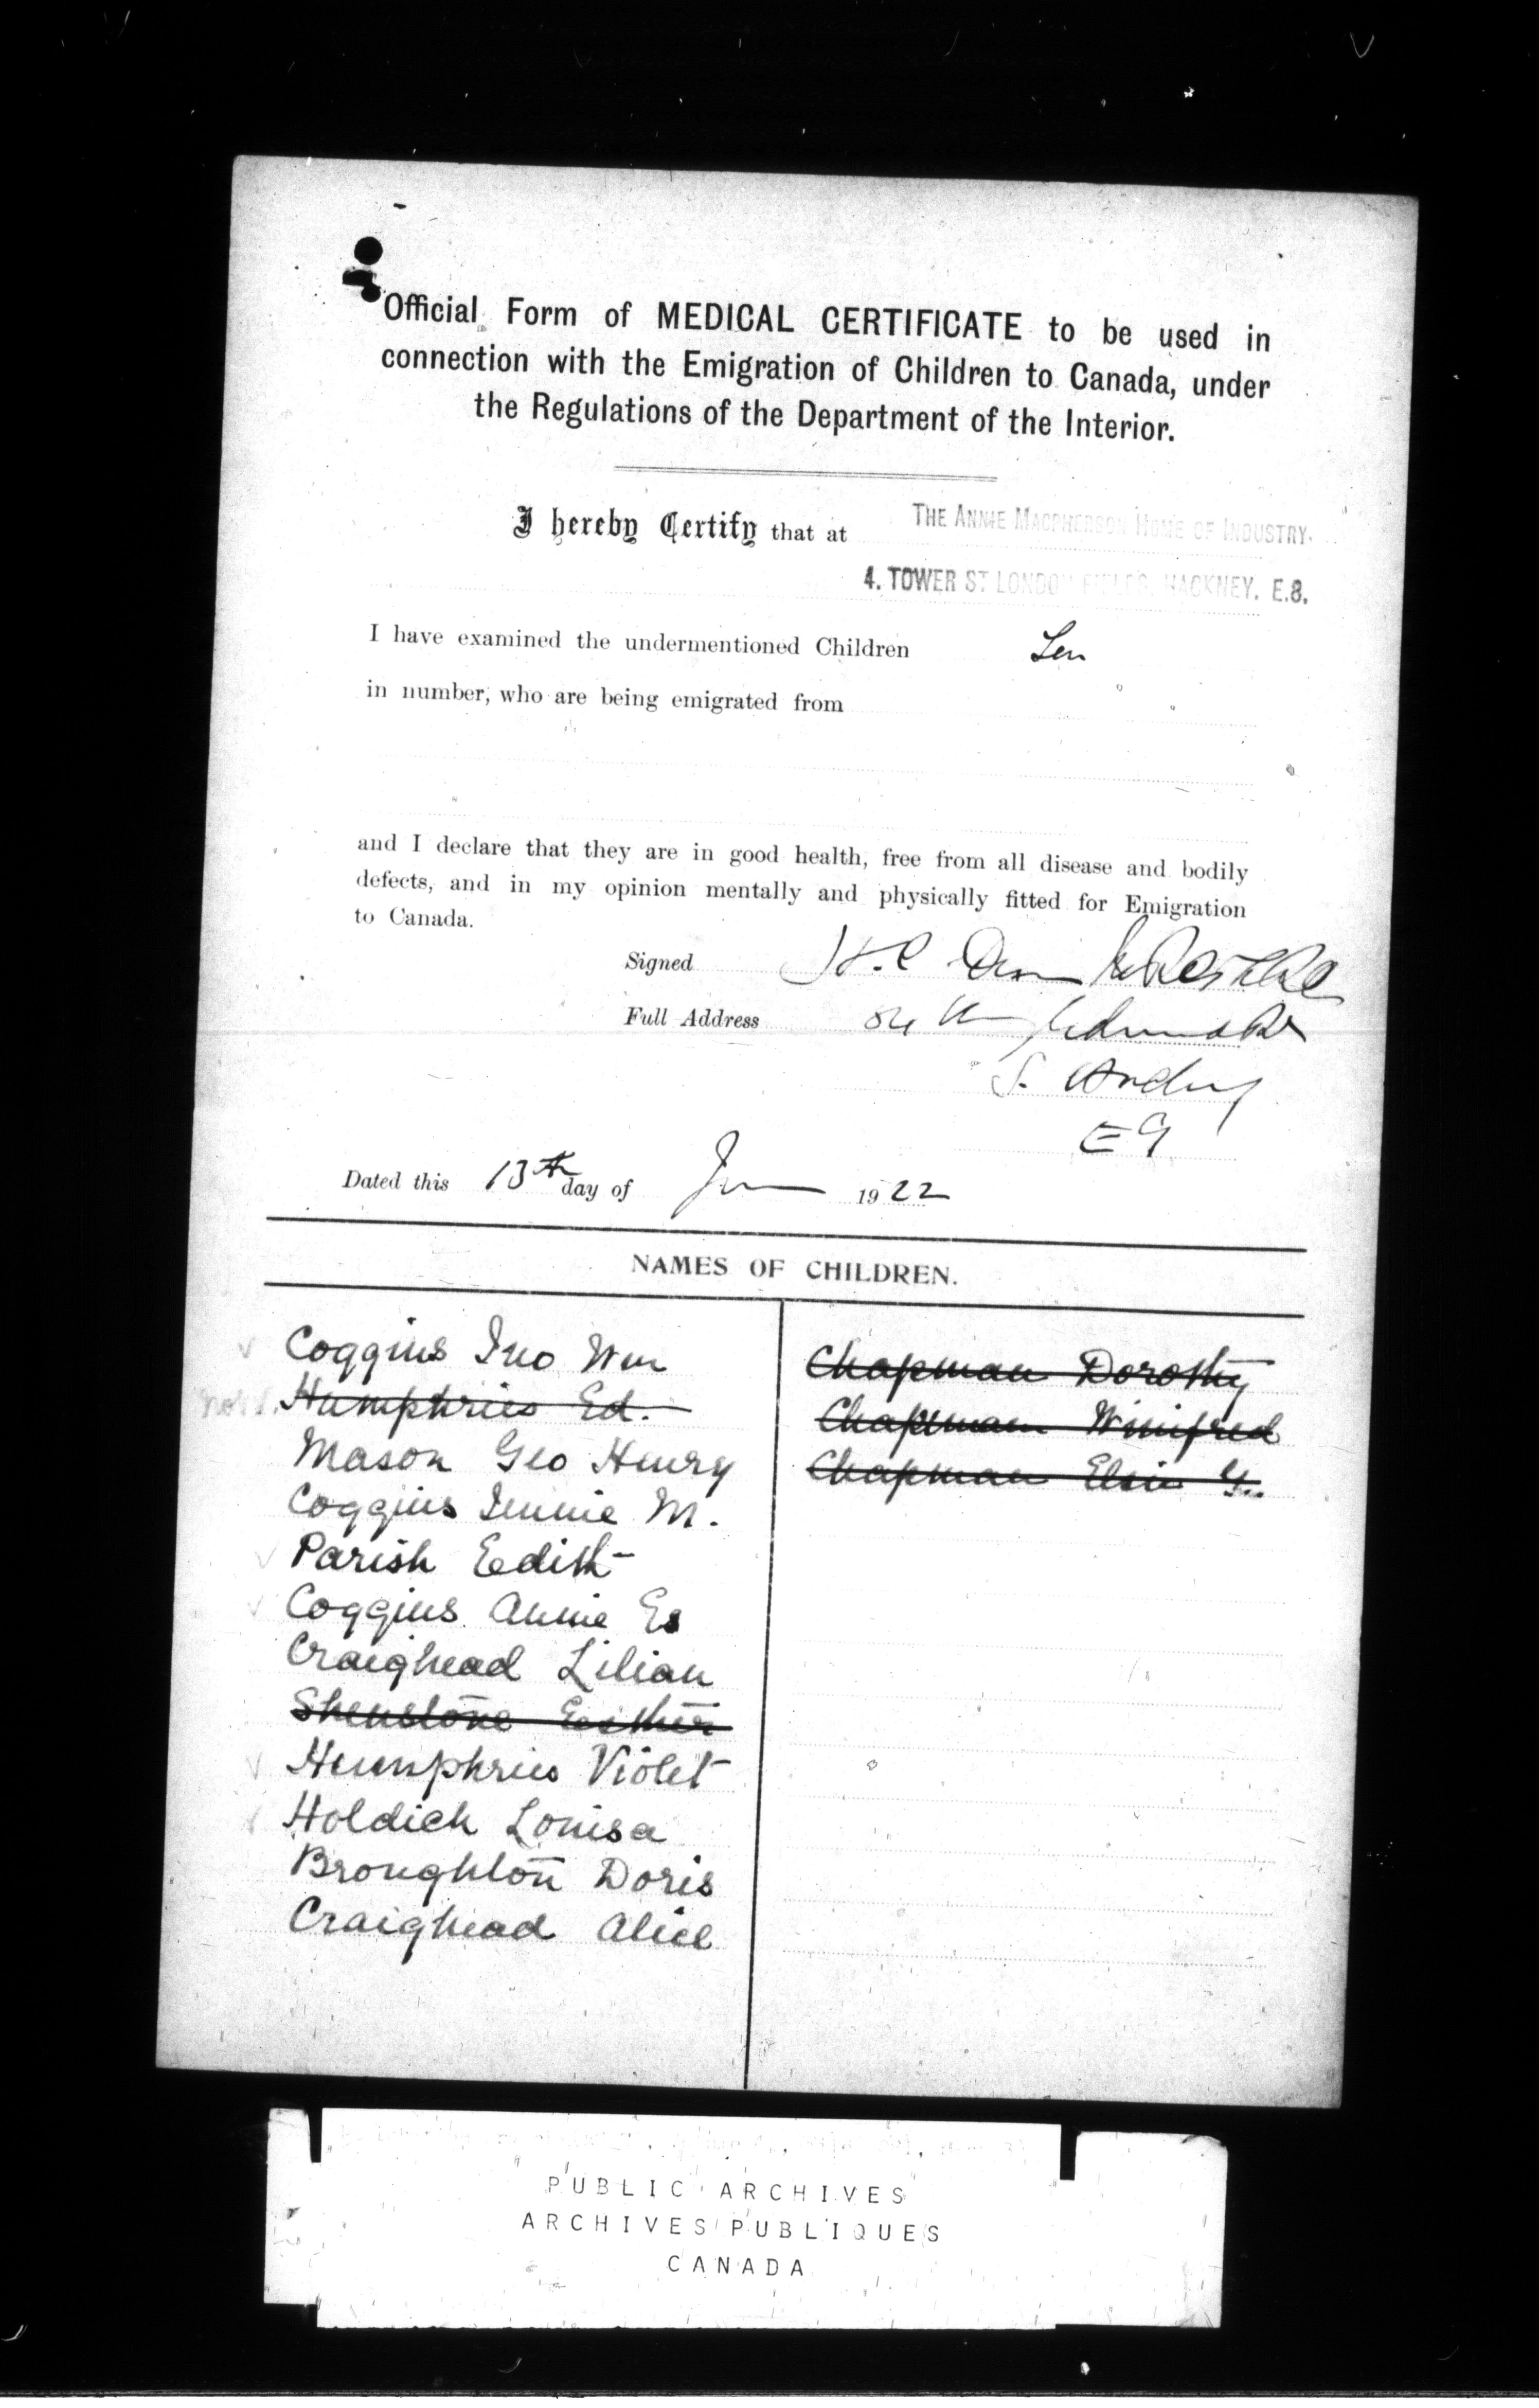 Official Form of MEDICAL CERTIFICATE to be used in
connection with the Emigration of Children to Canada, under
the Regulations of the Department of the Interior.
I hereby Certify that at THE ANNIE MACPHERSON HOME OF INDUSTRY.
4. TOWER ST LONDON FIELDS, HACKNEY. E.8.
I have examined the undermentioned Children Ten
in number, who are being emigrated from
and I declare that they are in good health, free from all disease and bodily
defects, and in my opinion mentally and physically fitted for Emigration
to Canada.
Signed
Full Address
E9
Dated this 13th day of June 1922
NAMES OF CHILDREN.
Coggins Jno Wm
Humphries Ed.
Mason Geo Henry
Coggins Jennie M.
Parish Edith
Coggins Annie Es
Craighead Lilian
Shenstone Esther
Humphries Violet
Holdich Louisa
Broughton Doris
Craighead Alice
Chapman Dorothy
Chapman Winifred
Chapman Elsie G.
PUBLIC ARCHIVES
ARCHIVES PUBLIQUES
CANADA